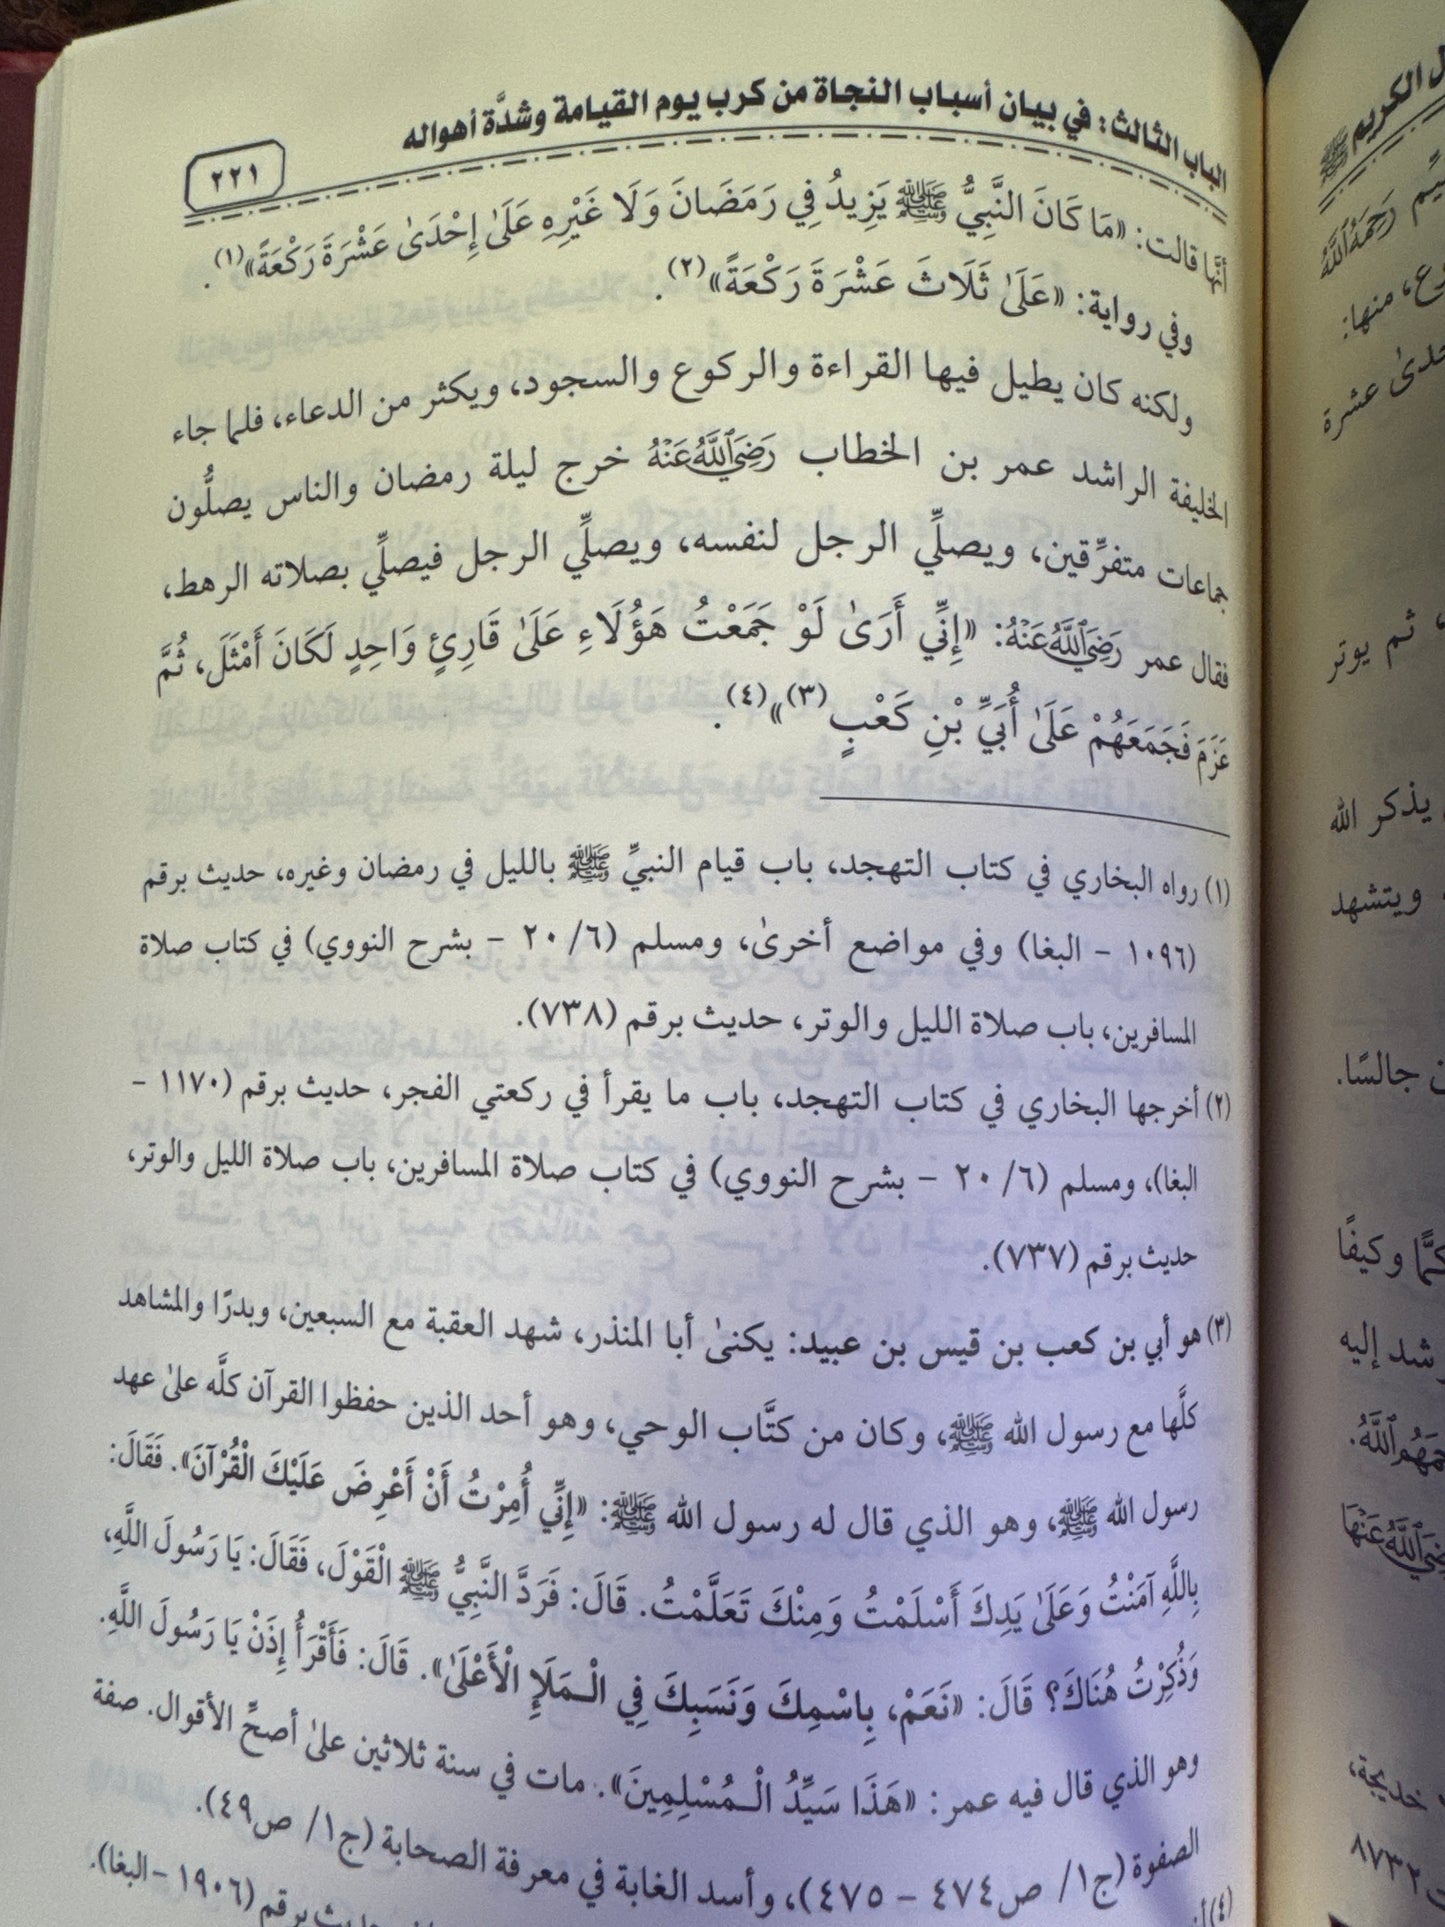 الباب الثالث: في بيان أسباب النجاة من كرب يوم القيامة وشدَّة أهواله
٢٢١
أنَّها قالت: «مَا كَانَ النَّبِيُّ ﷺ يَزِيدُ فِي رَمَضَانَ وَلَا غَيْرِهِ عَلَىٰ إِحْدَىٰ عَشْرَةَ رَكْعَةً»(١).
وفي رواية: «عَلَىٰ ثَلَاثَ عَشْرَةَ رَكْعَةً»(٢).
ولكنه كان يطيل فيها القراءة والركوع والسجود، ويكثر من الدعاء، فلما جاء
الخليفة الراشد عمر بن الخطاب رَضِيَ ٱللَّهُ عَنْهُ خرج ليلة رمضان والناس يصلُّون
جماعات متفرِّقين، ويصلِّي الرجل لنفسه، ويصلِّي الرجل فيصلِّي بصلاته الرهط،
فقال عمر رَضِيَ ٱللَّهُ عَنْهُ: «إِنِّي أَرَىٰ لَوْ جَمَعْتُ هَؤُلَاءِ عَلَىٰ قَارِئٍ وَاحِدٍ لَكَانَ أَمْثَلَ، ثُمَّ
عَزَمَ فَجَمَعَهُمْ عَلَىٰ أُبَيِّ بْنِ كَعْبٍ(٣)»(٤).
(١) رواه البخاري في كتاب التهجد، باب قيام النبيِّ ﷺ بالليل في رمضان وغيره، حديث برقم
(١٠٩٦ - البغا) وفي مواضع أخرىٰ، ومسلم (٦/ ٢٠ - بشرح النووي) في كتاب صلاة
المسافرين، باب صلاة الليل والوتر، حديث برقم (٧٣٨).
(٢) أخرجها البخاري في كتاب التهجد، باب ما يقرأ في ركعتي الفجر، حديث برقم (١١٧٠ -
البغا)، ومسلم (٦/ ٢٠ - بشرح النووي) في كتاب صلاة المسافرين، باب صلاة الليل والوتر،
حديث برقم (٧٣٧).
(٣) هو أبي بن كعب بن قيس بن عبيد: يكنىٰ أبا المنذر، شهد العقبة مع السبعين، وبدرًا والمشاهد
كلَّها مع رسول الله ﷺ، وكان من كتَّاب الوحي، وهو أحد الذين حفظوا القرآن كلَّه علىٰ عهد
رسول الله ﷺ، وهو الذي قال له رسول الله ﷺ: «إِنِّي أُمِرْتُ أَنْ أَعْرِضَ عَلَيْكَ الْقُرْآنَ». فَقَالَ:
بِاللَّهِ آمَنْتُ وَعَلَىٰ يَدِكَ أَسْلَمْتُ وَمِنْكَ تَعَلَّمْتُ. قَالَ: فَرَدَّ النَّبِيُّ ﷺ الْقَوْلَ، فَقَالَ: يَا رَسُولَ اللَّهِ،
وَذُكِرْتُ هُنَاكَ؟ قَالَ: «نَعَمْ، بِاسْمِكَ وَنَسَبِكَ فِي الْمَلَإِ الْأَعْلَىٰ». قَالَ: فَأَقْرَأُ إِذَنْ يَا رَسُولَ اللَّهِ.
وهو الذي قال فيه عمر: «هَذَا سَيِّدُ الْمُسْلِمِينَ». مات في سنة ثلاثين علىٰ أصحِّ الأقوال. صفة
الصفوة (ج١/ ص٤٧٤ - ٤٧٥)، وأسد الغابة في معرفة الصحابة (ج١/ ص٤٩).
(٤) حديث برقم (١٩٠٦ - البغا).
الكريم ﷺ
رَحِمَهُ ٱللَّهُ
منها:
عشرة
ثم يوتر
يذكر الله
ويتشهد
جالسًا.
كمًّا وكيفًا
إليه
خديجة،